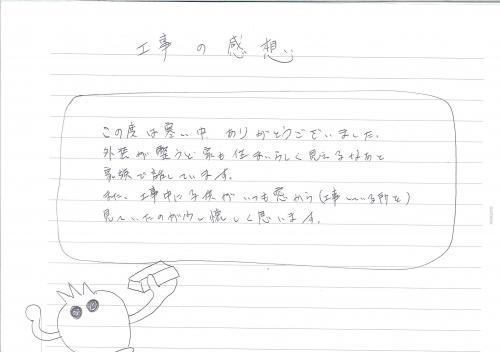 工事の感想
この度は暑い中 ありがとうございました。
外装が整うと家も住まいらしく見えるなあと
家族で話しています。
又、工事中に子供がいつも窓から(工事している所を)
見ていたのが少し懐しく思います。